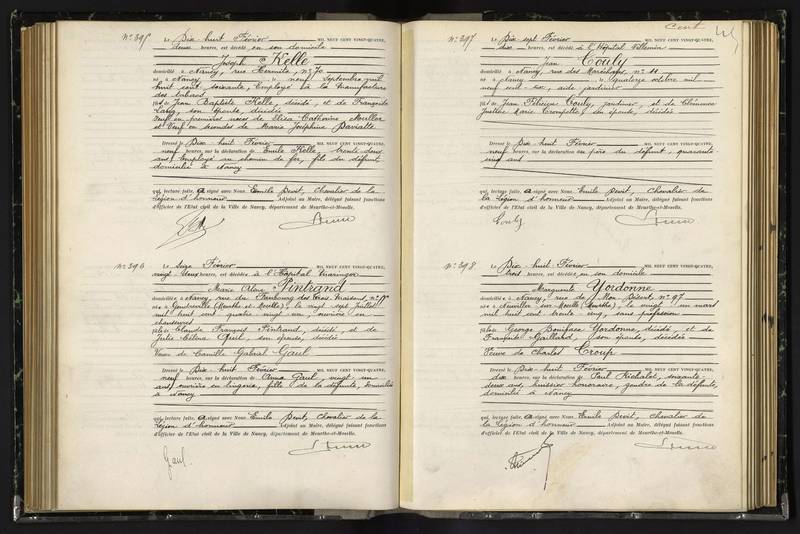 N° 395
Le Dix-huit Février MIL NEUF CENT VINGT-QUATRE,
deux heures, est décédé en son domicile
Joseph Kelle
domicilié à Nancy, rue Hermite, n° 70
né à Nancy le neuf Septembre mil
huit cent soixante, Employé à la Manufacture
des tabacs
fils de Jean Baptiste Kelle, décédé, et de Françoise
son épouse, décédée
Veuf en premières noces de Elisa Catherine Moullor
et Veuf en secondes de Marie Joséphine
Dressé le Dix-huit Février MIL NEUF CENT VINGT-QUATRE,
neuf heures, sur la déclaration de Emile Kelle, trente deux
ans, Employé au chemin de fer, fils du défunt,
domicilié à Nancy
qui, lecture faite, a signé avec Nous, Emile Devit, Chevalier de la
Légion d'honneur Adjoint au Maire, délégué faisant fonctions
d'officier de l'Etat civil de la Ville de Nancy, département de Meurthe-et-Moselle.
N° 396
Le Seize Février MIL NEUF CENT VINGT-QUATRE,
vingt deux heures, est décédée à l'Hôpital Maringer
Marie Aline Pintrand
domiciliée à Nancy, rue du Faubourg des trois Maisons, n°
née à Gondreville (Meurthe et Moselle), le vingt sept juillet
mil huit cent quatre vingt un, ouvrière en
chaussures
fille de Claude François Pintrand, décédé, et de
Julie Célina son épouse, décédée
Veuve de Camille Gabriel Gaul
Dressé le Dix-huit Février MIL NEUF CENT VINGT-QUATRE,
neuf heures, sur la déclaration de Anna Gaul, vingt un
ans, ouvrière en lingerie, fille de la défunte, domiciliée
à Nancy
qui, lecture faite, a signé avec Nous, Emile Devit, Chevalier de la
Légion d'honneur Adjoint au Maire, délégué faisant fonctions
d'officier de l'Etat civil de la Ville de Nancy, département de Meurthe-et-Moselle.
Gaul
Cent
N° 397
Le Dix-sept Février MIL NEUF CENT VINGT-QUATRE,
dix heures, est décédé à l'Hôpital Villemin
Jean Couty
domicilié à Nancy, rue des Maréchaux, n° 11
né à Nancy le quatorze octobre mil
neuf cent six, aide jardinier
fils de Jean Félicien Couty, jardinier, et de Clémence
Justine Marie son épouse, décédée
Dressé le Dix-huit Février MIL NEUF CENT VINGT-QUATRE,
neuf heures, sur la déclaration du père du défunt, quarante-
cinq ans
qui, lecture faite, a signé avec Nous, Emile Devit, Chevalier de
la Légion d'honneur Adjoint au Maire, délégué faisant fonctions
d'officier de l'Etat civil de la Ville de Nancy, département de Meurthe-et-Moselle.
Couty
N° 398
Le Dix-huit Février MIL NEUF CENT VINGT-QUATRE,
trois heures, est décédée en son domicile
Marguerite Yordonne
domiciliée à Nancy, rue de Mon Désert, n° 97
née à Neuviller sur Moselle (Meurthe), le vingt un mars
mil huit cent trente cinq, sans profession
fille de George Boniface Yordonne, décédé, et de
Françoise Gaillard, son épouse, décédée
Veuve de Charles Croup
Dressé le Dix-huit Février MIL NEUF CENT VINGT-QUATRE,
dix heures, sur la déclaration de Paul Richalot, soixante-
deux ans, huissier honoraire, gendre de la défunte,
domicilié à Nancy
qui, lecture faite, a signé avec Nous, Emile Devit, Chevalier de
la Légion d'honneur Adjoint au Maire, délégué faisant fonctions
d'officier de l'Etat civil de la Ville de Nancy, département de Meurthe-et-Moselle.